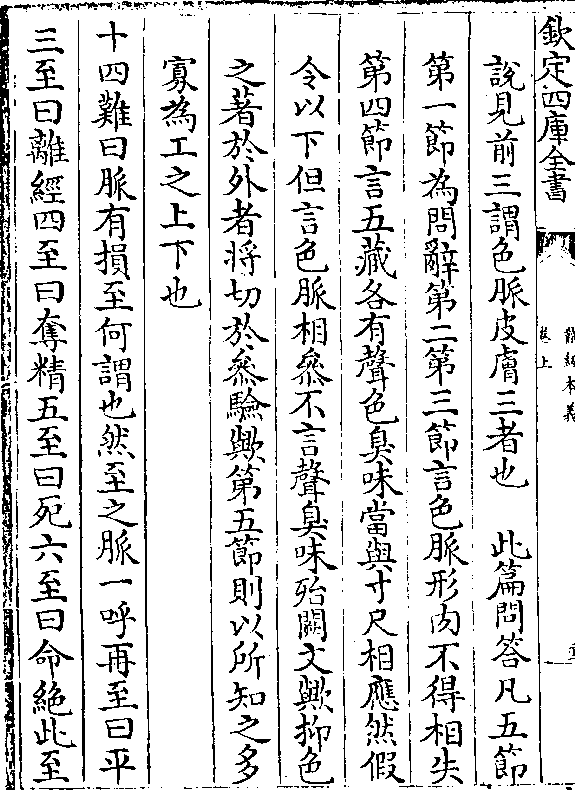 欽定四庫全書
難經本義
卷上
說見前三謂色脈皮膚三者也　此篇問答凡五節
第一節為問辭第二第三節言色脈形肉不得相失
第四節言五藏各有聲色臭味當與寸尺相應然假
令以下但言色脈相叅不言聲臭味殆闕文歟抑色
之著於外者將切於叅驗歟第五節則以所知之多
寡為工之上下也
十四難曰脈有損至何謂也然至之脈一呼再至曰平
三至曰離經四至曰奪精五至曰死六至曰命絕此至